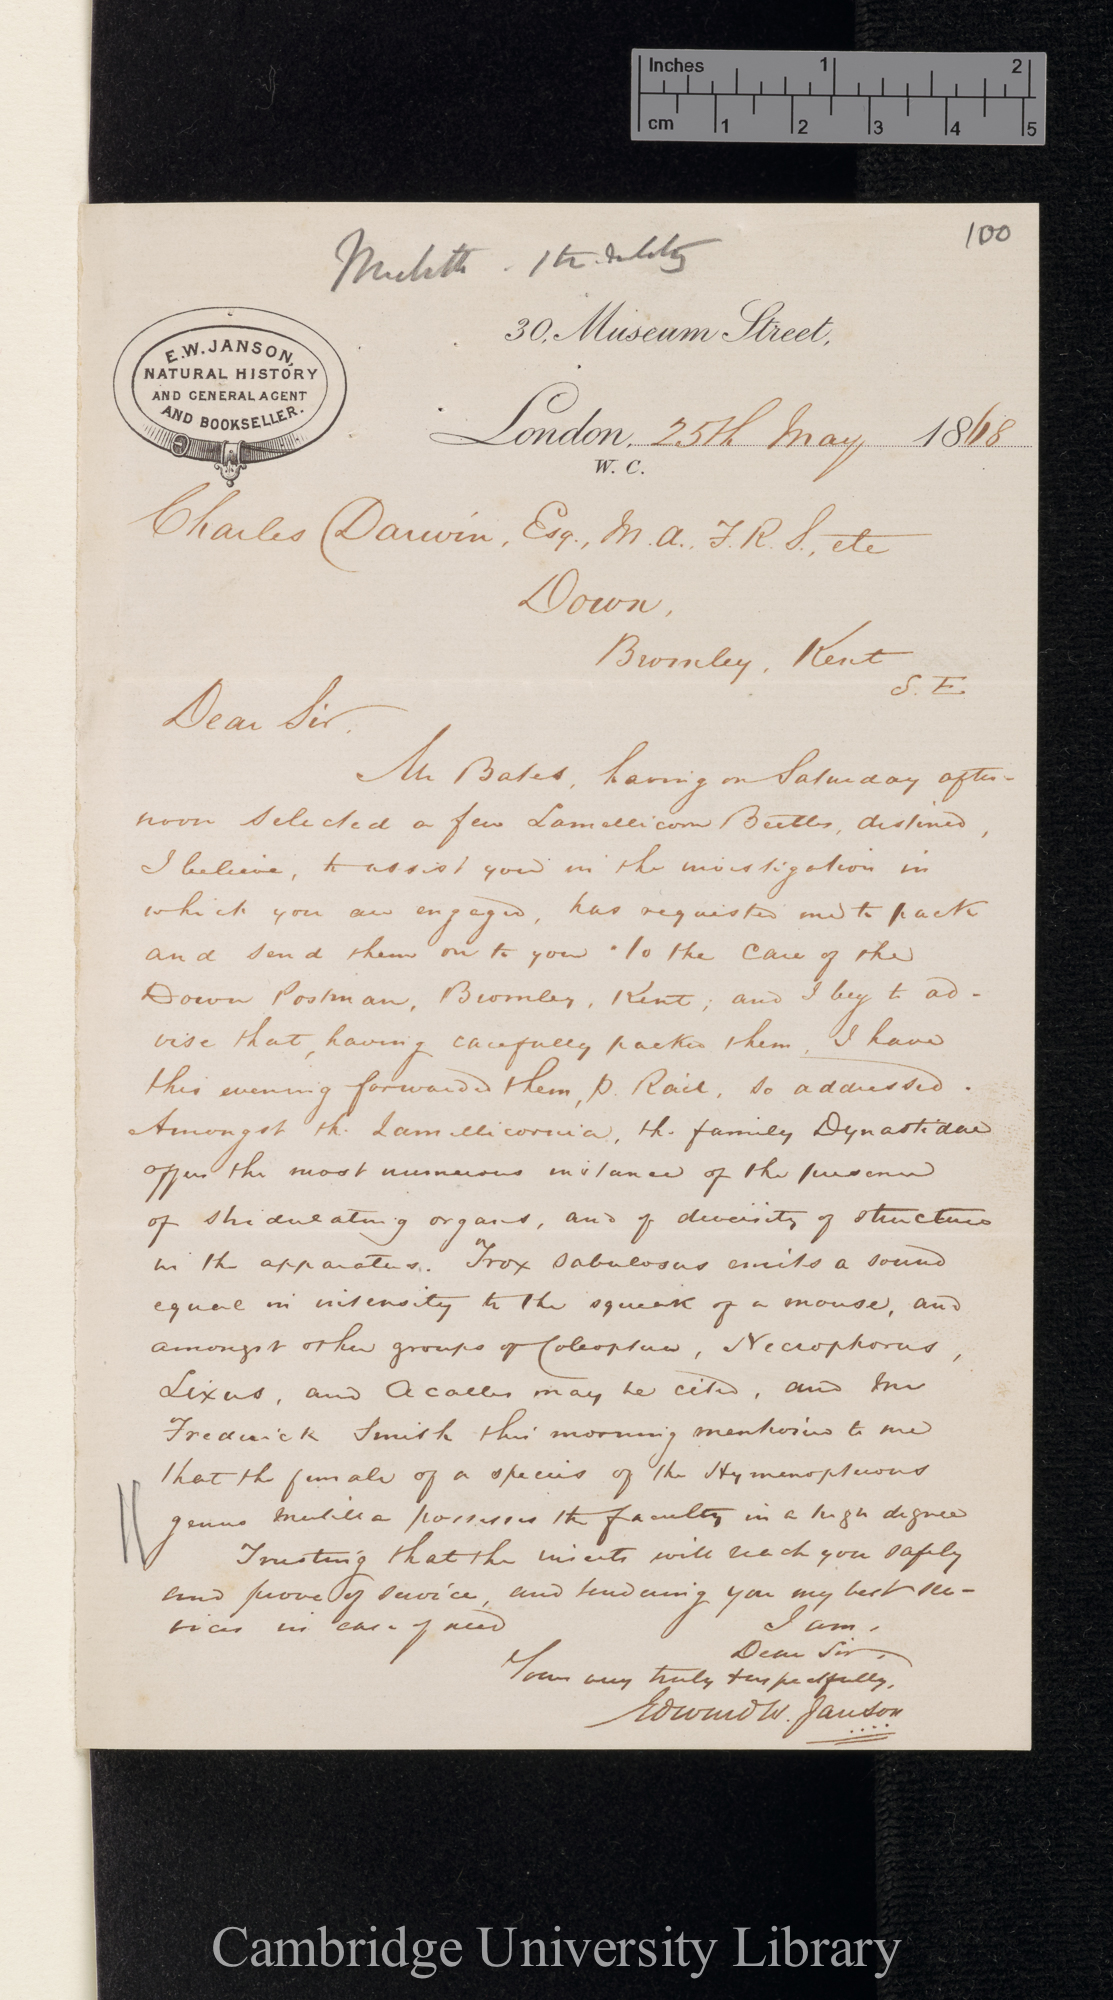 Inches 1 2
cm 1 2 3 4 5
100
30, Museum Street,
E.W. JANSON,
NATURAL HISTORY
AND GENERAL AGENT
AND BOOKSELLER.
London, 25th May 1868
W. C.
Charles Darwin, Esq., M. A., F. R. S., etc
Down,
Bromley, Kent
S. E.
Dear Sir,
Mr Bates, having on Saturday after-
noon selected a few Lamellicorn Beetles, destined,
I believe, to assist you in the investigation in
which you are engaged, has requested me to pack
and send them on to you "To the care of the
Down Postman, Bromley, Kent; and I beg to ad-
vise that, having carefully packed them, I have
this evening forwarded them, p. Rail, so addressed.
Amongst the Lamellicornia, the family Dynastidae
offers the most numerous instances of the presence
of stridulating organs, and of diversity of structure
in the apparatus. Trox sabulosus emits a sound
equal in intensity to the squeak of a mouse, and
amongst other groups of Coleoptera, Necrophorus,
Lixus, and Acalles may be cited, and Mr
Frederick Smith this morning mentioned to me
that the female of a species of the Hymenopterous
genus Mutilla possesses the faculty in a high degree
Trusting that the insects will reach you safely
and prove of service, and tendering you my best ser-
vices in case of need
I am,
Dear Sir,
Yours very truly & respectfully,
Edward W. Janson
Cambridge University Library